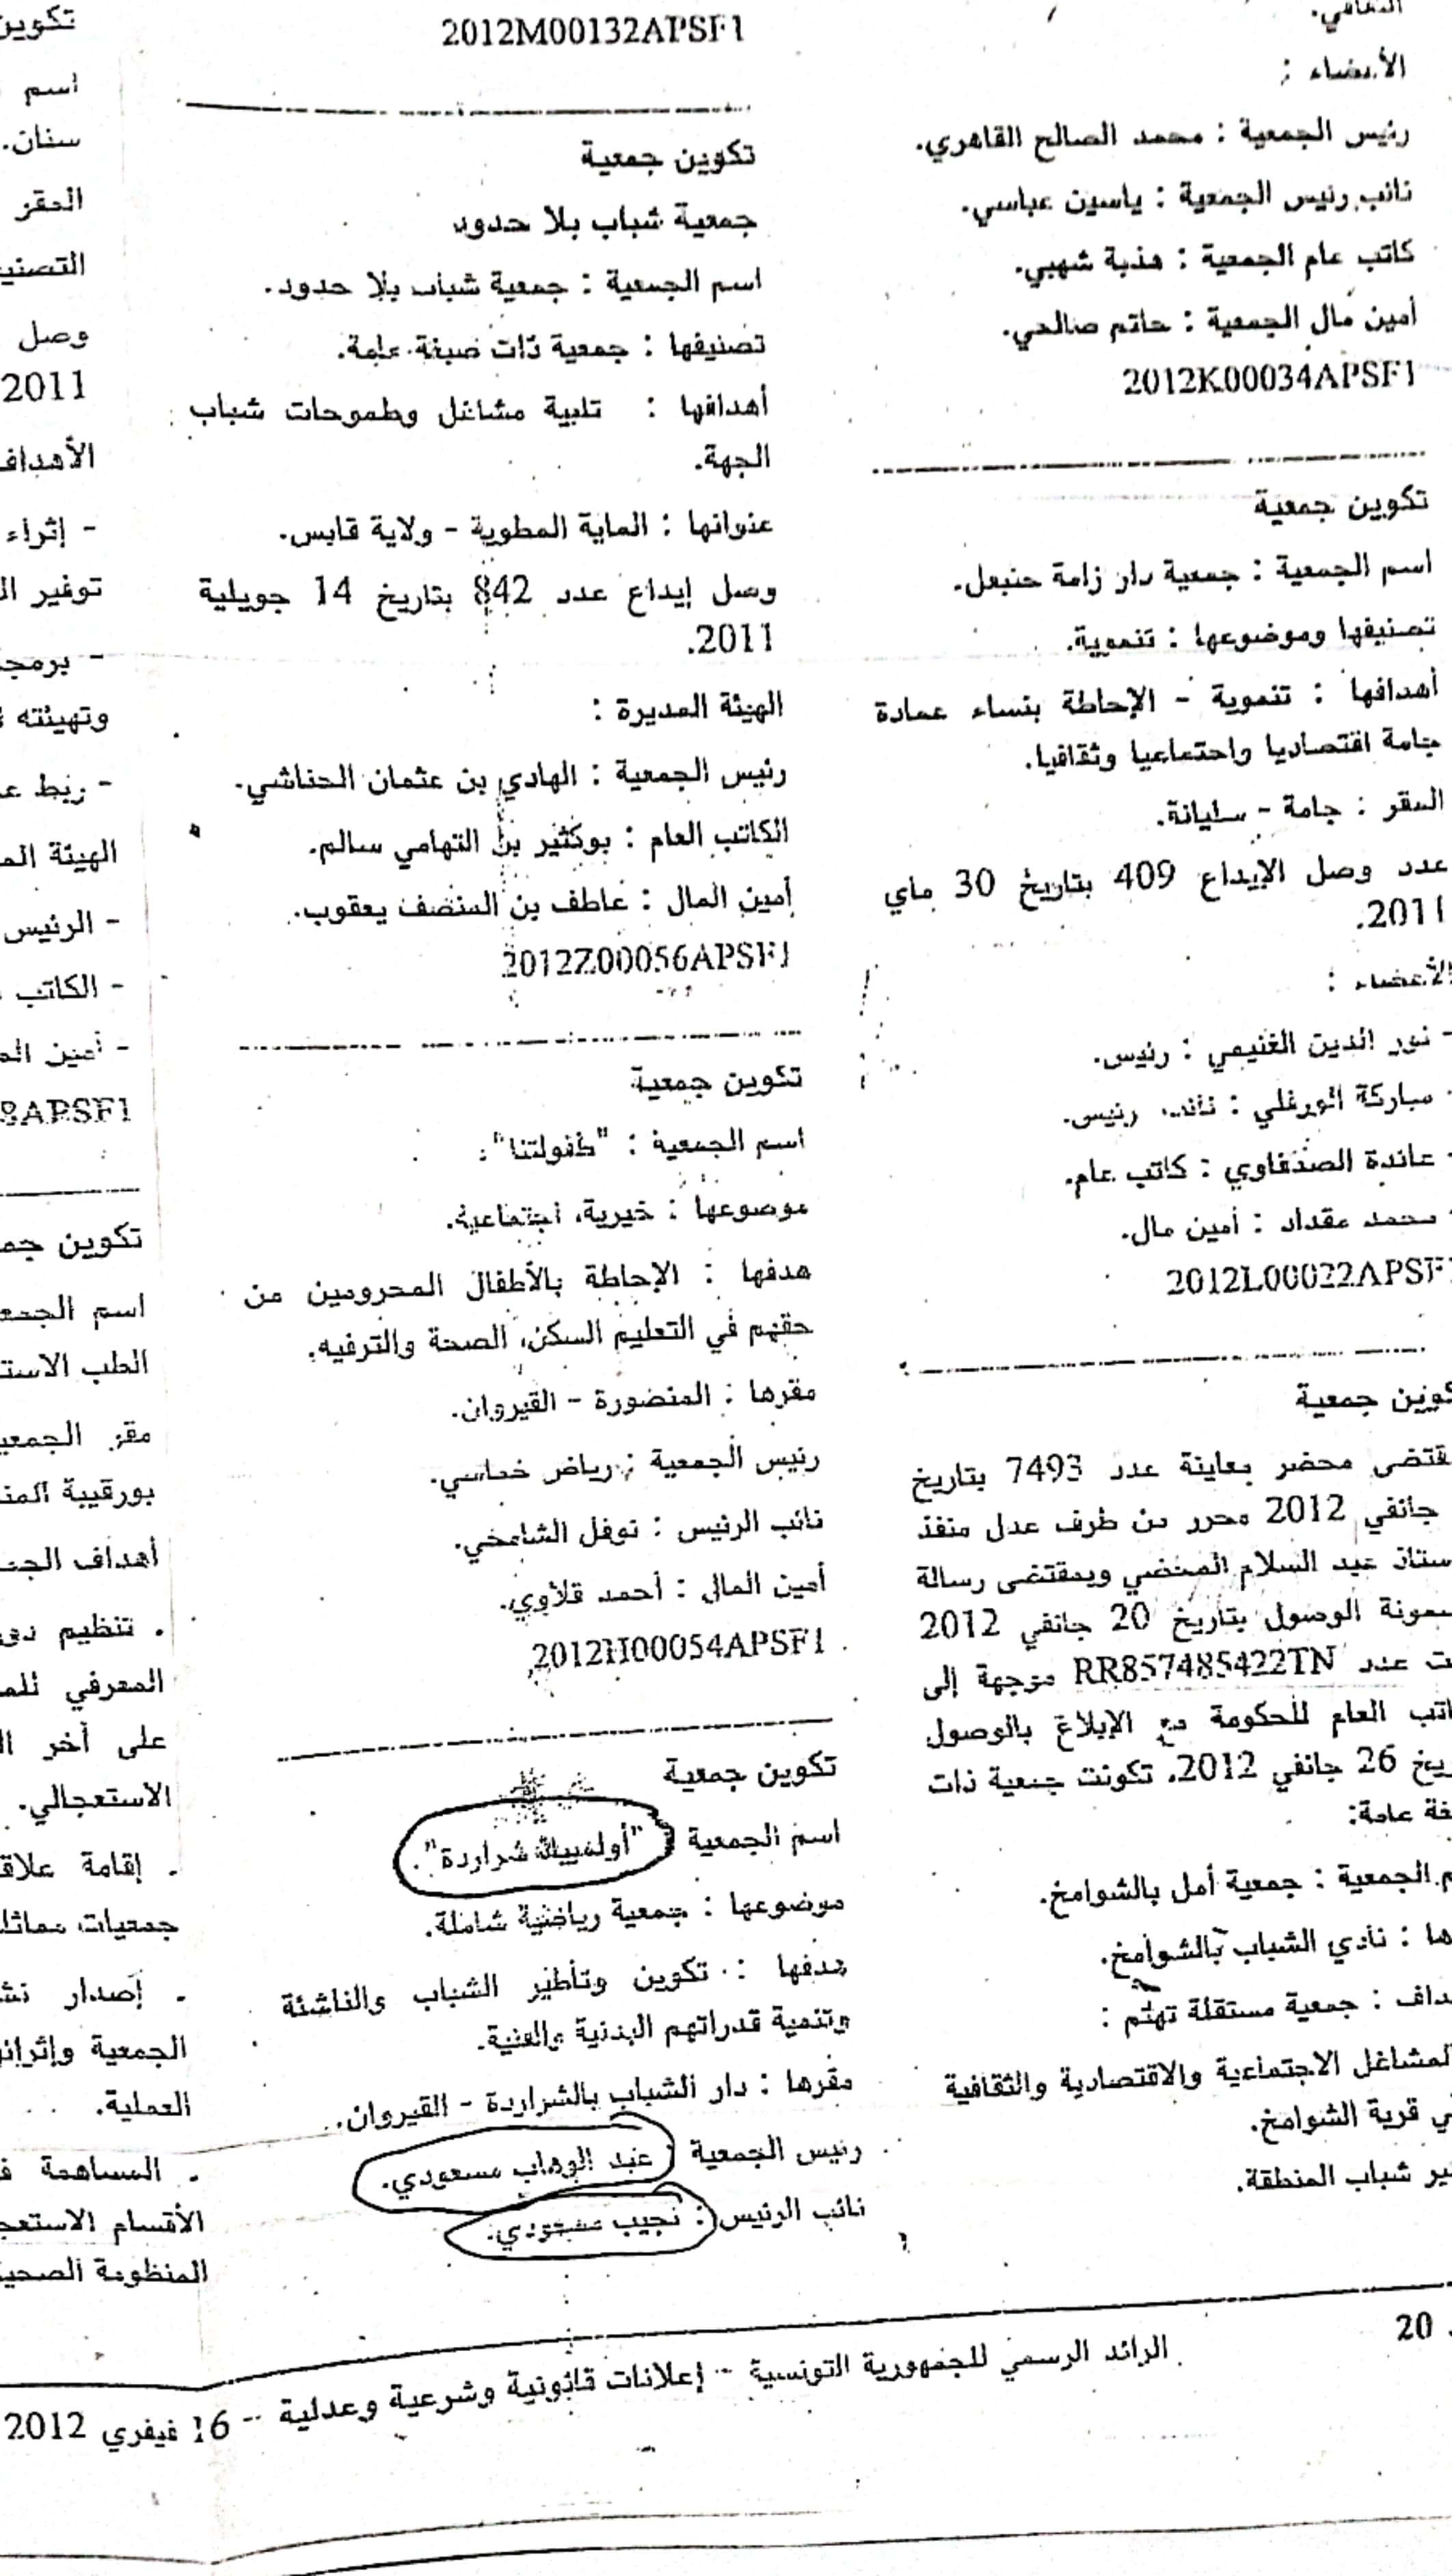 الثقافي.
الأعضاء :
رئيس الجمعية : محمد الصالح القاهري.
نائب رئيس الجمعية : ياسين عباسي.
كاتب عام الجمعية : هذبة شهبي.
أمين مال الجمعية : حاتم صالحي.
2012K00034APSF1
تكوين جمعية
اسم الجمعية : جمعية دار زامة حنبعل.
تصنيفها وموضوعها : تنموية.
أهدافها : تنموية - الإحاطة بنساء عمادة
جامة اقتصاديا واجتماعيا وثقافيا.
المقر : جامة - سليانة.
عدد وصل الإيداع 409 بتاريخ 30 ماي
2011.
الأعضاء :
- نور الدين الغنيمي : رئيس.
مباركة الورغلي : نائب رئيس.
- عائدة الصدفاوي : كاتب عام.
محمد مقداد : أمين مال.
2012L00022APSF1
كوين جمعية
قتضى محضر معاينة عدد 7493 بتاريخ
جانفي 2012 محرر من طرف عدل منفذ
ستاذ عبد السلام المحضي وبمقتضى رسالة
سمونة الوصول بتاريخ 20 جانفي 2012
ت عدد RR857485422TN موجهة إلى
اتب العام للحكومة مع الإبلاغ بالوصول
ريخ 26 جانفي 2012. تكونت جمعية ذات
غة عامة:
م الجمعية : جمعية أمل بالشوامخ.
ها : نادي الشباب بالشوامخ.
داف : جمعية مستقلة تهتم :
لمشاغل الاجتماعية والاقتصادية والثقافية
ي قرية الشوامخ.
ير شباب المنطقة.
2012M00132APSF1
تكوين جمعية
جمعية شباب بلا حدود
اسم الجمعية : جمعية شباب بلا حدود.
تصنيفها : جمعية ذات صبغة عامة.
أهدافها : تلبية مشاغل وطموحات شباب
الجهة.
عنوانها : الماية المطوية - ولاية قابس.
وصل إيداع عدد 842 بتاريخ 14 جويلية
2011.
الهيئة المديرة :
رئيس الجمعية : الهادي بن عثمان الحناشي.
الكاتب العام : بوكثير بن التهامي سالم.
أمين المال : عاطف بن المنصف يعقوب.
2012Z00056APSF1
تكوين جمعية
اسم الجمعية : "طفولتنا".
موضوعها : خيرية، اجتماعية.
هدفها : الإحاطة بالأطفال المحرومين من
حقهم في التعليم السكن، الصحة والترفيه.
مقرها : المنصورة - القيروان.
رئيس الجمعية : رياض خماسي.
نائب الرئيس : نوفل الشامخي.
أمين المال : أحمد قلاوي.
2012H00054APSF1
تكوين جمعية
اسم الجمعية "أولمبياك شراردة".
موضوعها : جمعية رياضية شاملة.
هدفها : تكوين وتأطير الشباب والناشئة
وتنمية قدراتهم البدنية والفنية.
مقرها : دار الشباب بالشراردة - القيروان.
رئيس الجمعية عبد الوهاب مسعودي.
نائب الرئيس : نجيب مسعودي.
تكوين
اسم
سنان.
المقر
التصني
وصل
2011
الأهداف
- إثراء
توفير ال
- برمج
وتهيئته
- ربط ع
الهيئة الم
- الرئيس
- الكاتب
- أمين الم
8APSF1
تكوين جم
اسم الجمع
الطب الاست
مقر الجمعي
بورقيبة المن
أهداف الجم
. تنظيم دو
المعرفي للم
على أخر ال
الاستعجالي.
. إقامة علاق
جمعيات مماثل
. إصدار نش
الجمعية وإثرائ
العملية.
. المساهمة ف
الأقسام الاستعج
المنظومة الصحي
20
الرائد الرسمي للجمهورية التونسية -- إعلانات قانونية وشرعية وعدلية -- 16 فيفري 2012